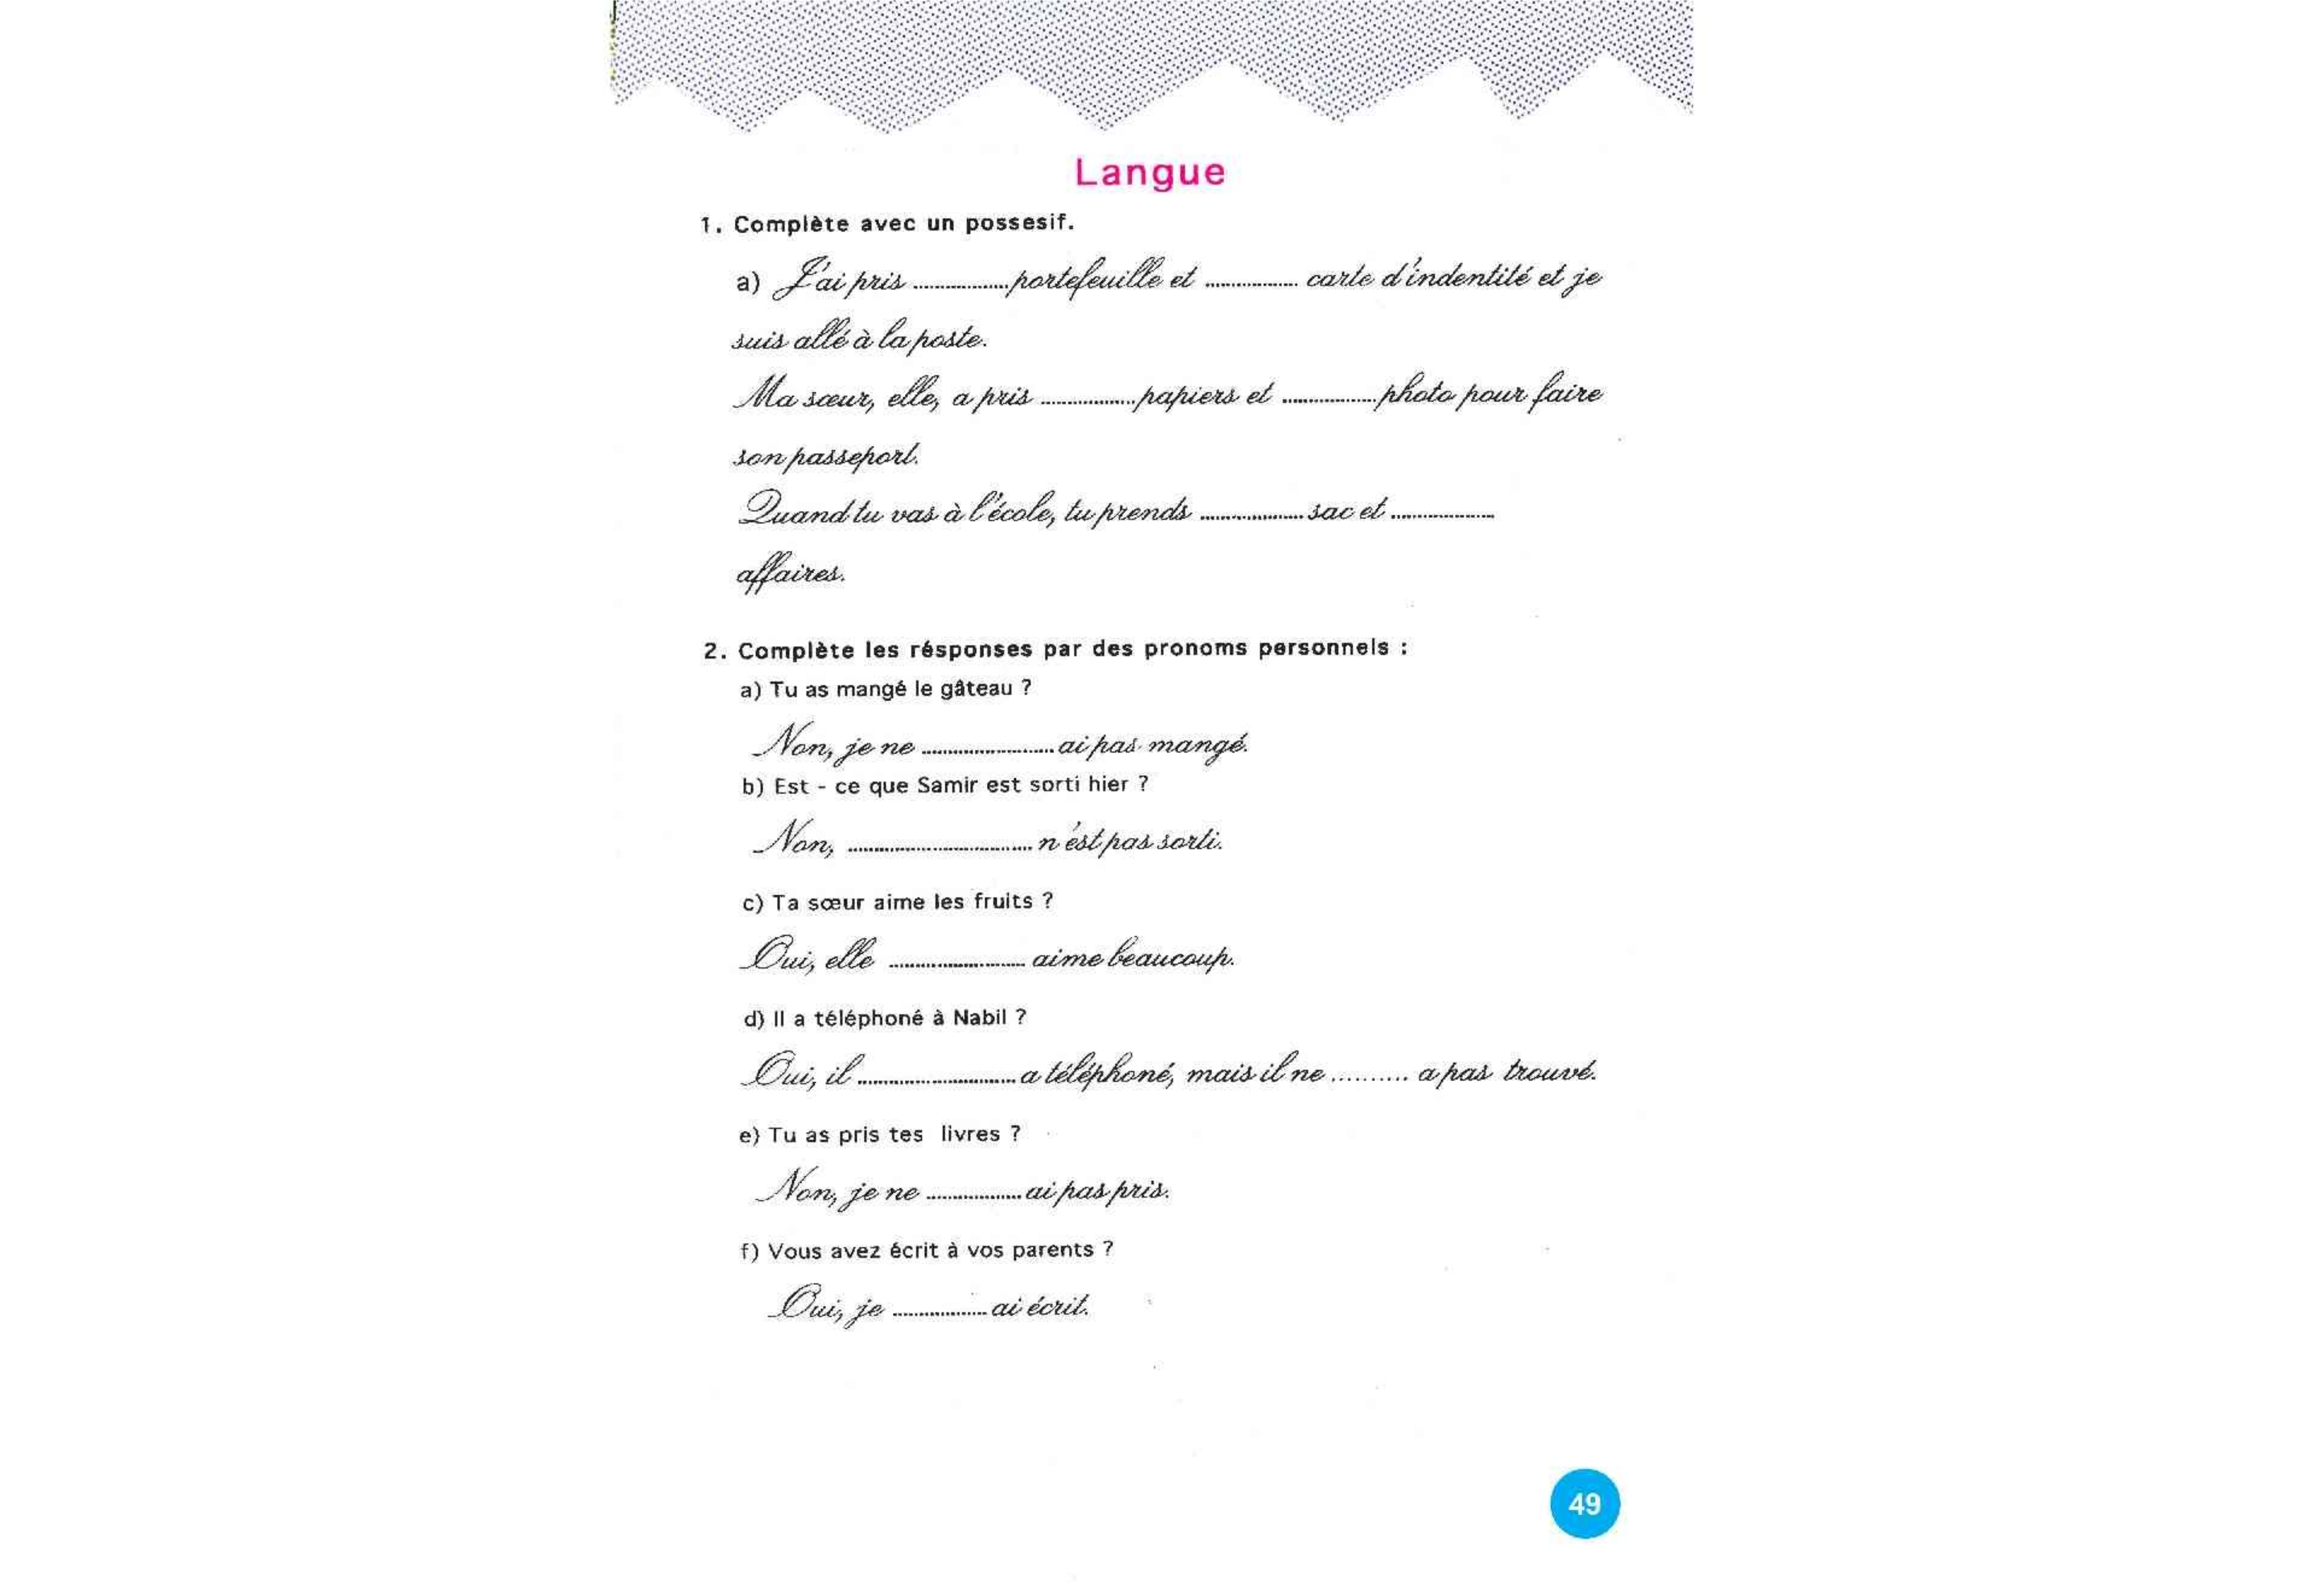 Langue
1. Complète avec un possesif.
a) J'ai pris .................. portefeuille et .................. carte d'indentité et je
suis allé à la poste.
Ma sœur, elle, a pris .................. papiers et .................. photo pour faire
son passeport.
Quand tu vas à l'école, tu prends .................... sac et ....................
affaires.
2. Complète les résponses par des pronoms personnels :
a) Tu as mangé le gâteau ?
Non, je ne ......................... ai pas mangé.
b) Est - ce que Samir est sorti hier ?
Non, ................................... n'est pas sorti.
c) Ta sœur aime les fruits ?
Oui, elle .......................... aime beaucoup.
d) Il a téléphoné à Nabil ?
Oui, il .............................. a téléphoné, mais il ne .......... a pas trouvé.
e) Tu as pris tes livres ?
Non, je ne .................. ai pas pris.
f) Vous avez écrit à vos parents ?
Oui, je .................. ai écrit.
49